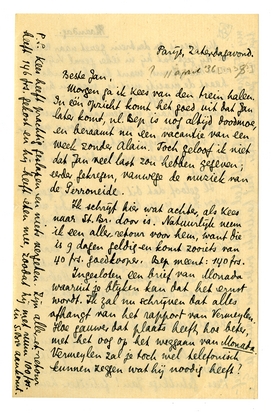 Parijs, Zaterdagavond.
? 11 april '36
Beste Jan,
Morgen ga ik Kees van den trein halen.
In een opzicht komt het goed uit dat Jan
later komt, nl. Bep is nog altijd doodmoe,
en beraamt nu een vacantie van een
week zonder Alain. Toch geloof ik niet
dat Jan veel last zou hebben gegeven;
eerder gekregen, vanwege de muziek van
de Perroneide.
Ik schrijf hier wat achter, als Kees
naar St. Br. door is. Natuurlijk neem
ik een aller-retour voor hem, want die
is 9 dagen geldig en komt zooiets van
40 frs. goedkooper. Bep meent: 140 frs.
Ingesloten een brief van Monada
waaruit je blijken kan dat het ernst
wordt. Ik zal nu schrijven dat alles
afhangt van het rapport van Vermeylen.
Hoe gauwer dat plaats heeft, hoe beter,
met het oog op het weggaan van Monada.
Vermeylen zal je toch wel telefonisch
kunnen zeggen wat hij noodig heeft?
P.S. Kees heeft prachtig geslapen en niets vergeten. Zijn aller-et-retour
heeft 146 frs. gekost en hij heeft eten mee, zoodat hij met ruim 100 frs.
in St. Br. aankomt.